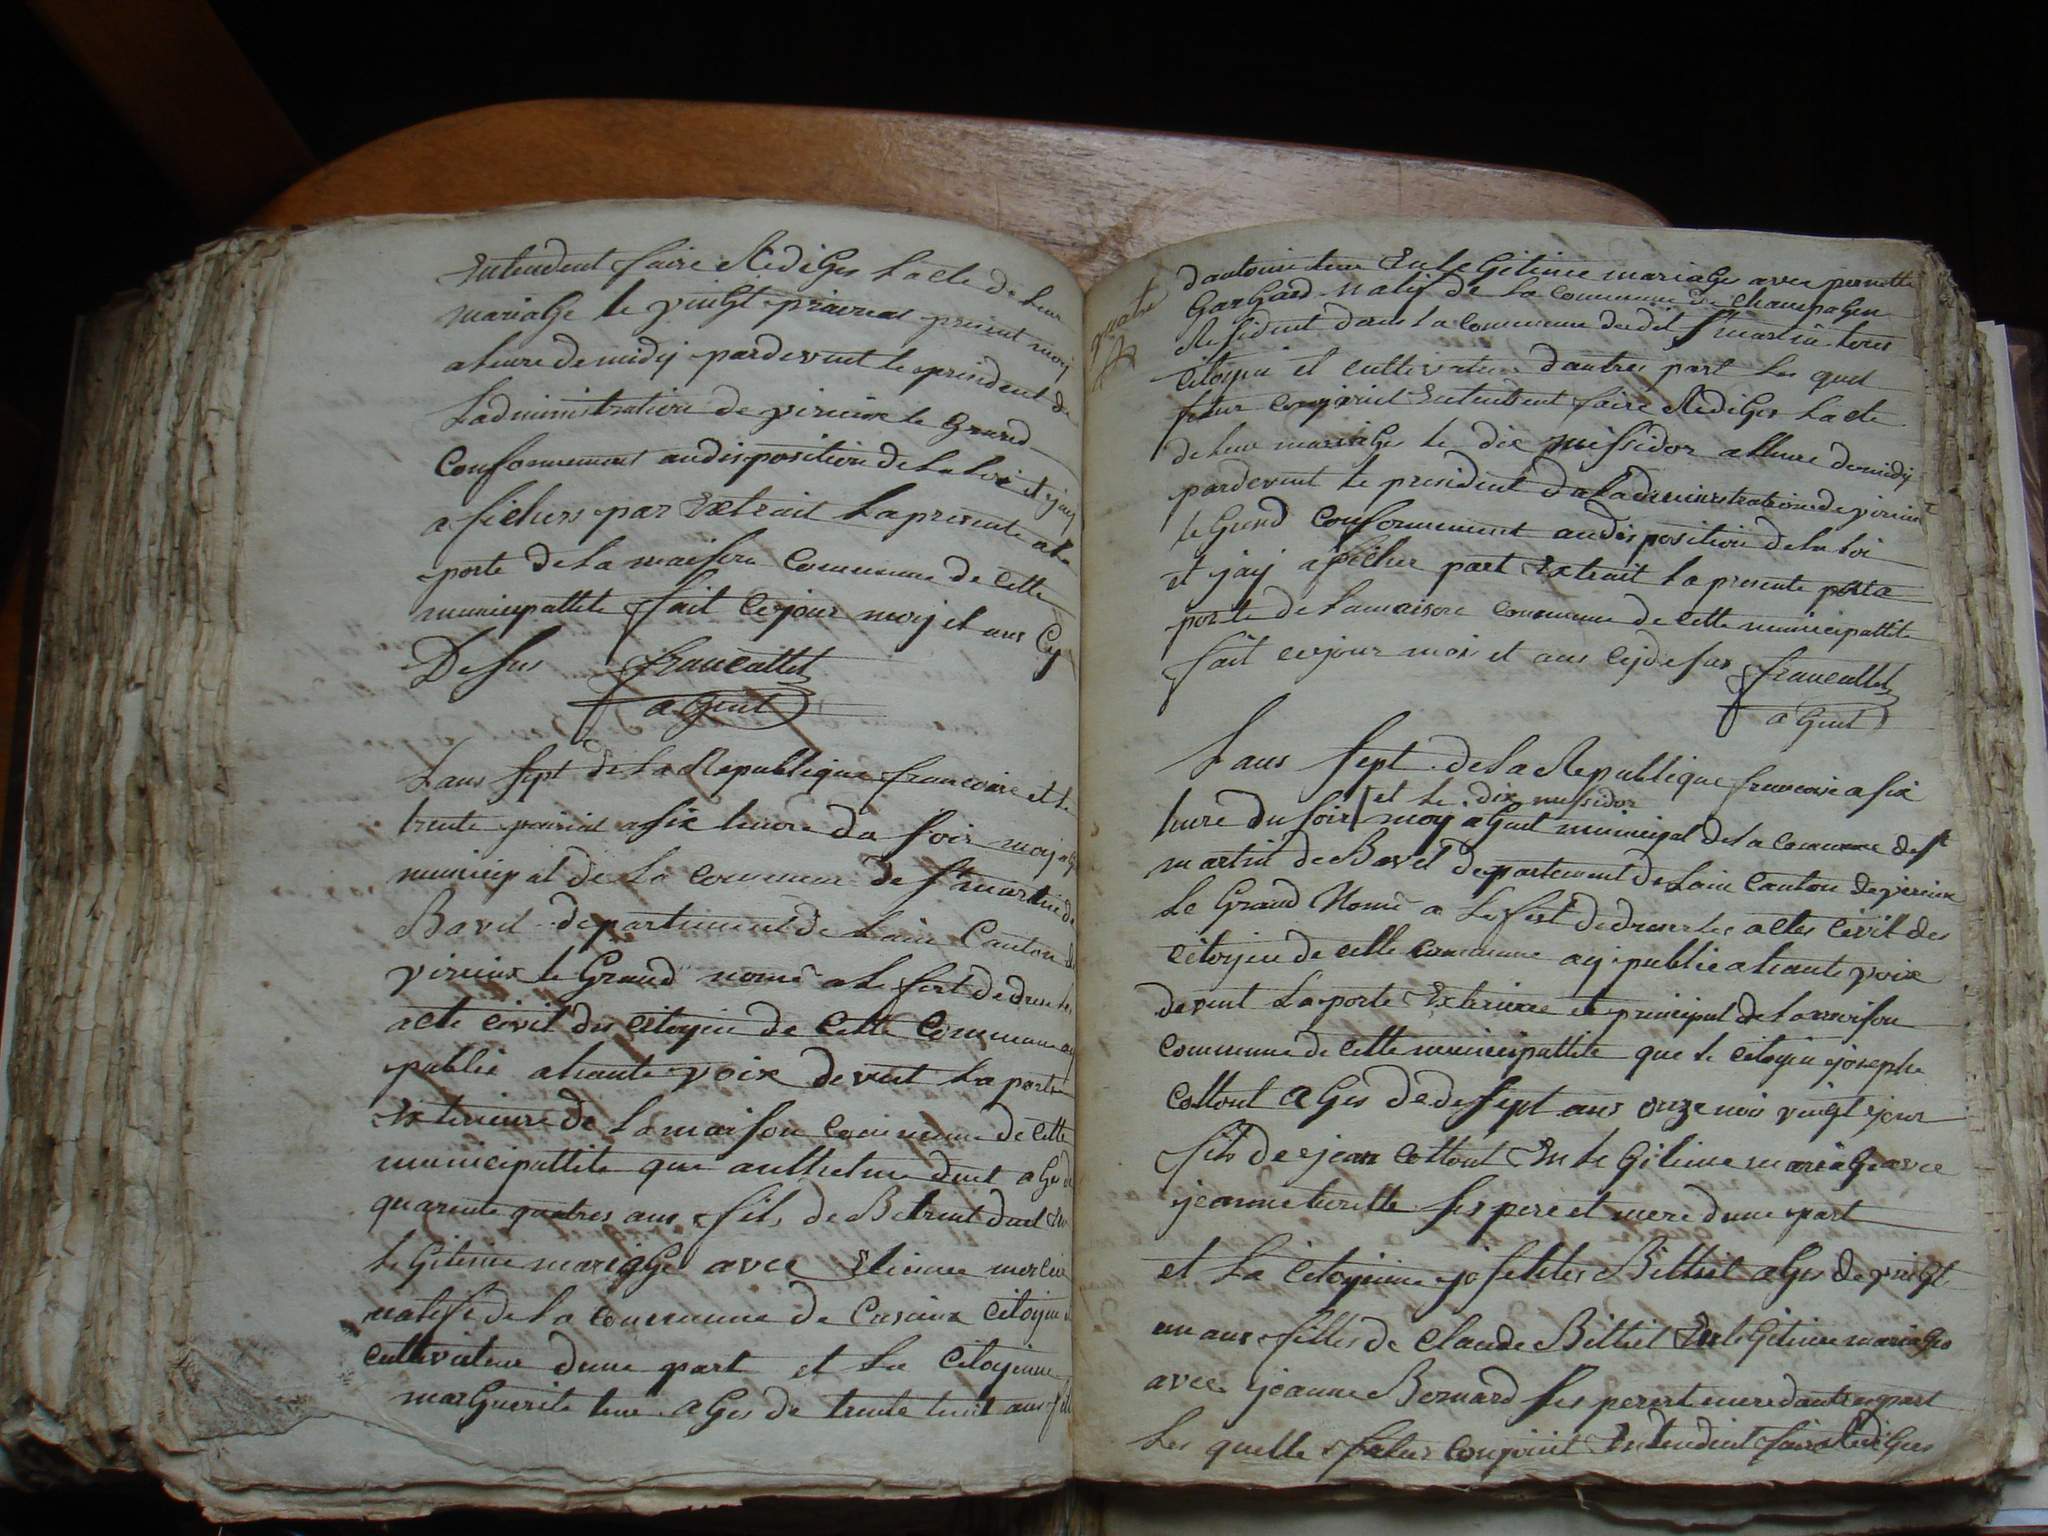 Entendent faire Rediger Lacte de leur
mariage le vingt prairial present moy
aheure de midy pardevent le president de
Ladministration de virieux le grand
Conformement audisposition de la Loi et jay
a ficher par Extrait La presente a la
porte de la maison Commune de Cette
municipallite fait Cejour moy et ans Cy
Desus francallet
agent
Lans sept de la Republique francoise et le
trente a six heure du soir moy ag
municipal de La commune de st martin de
Bavel departement de Lain Canton de
virieux le Grand nomé a le fert de dresser les
acte civil des citoyin de Cette Commune ay
publié a haute voix devent La porte
Exterieure de la maison commune de cette
municipallite que anthelme duet ages de
quarente quatres ans fils de duet En
le Gitime mariage avec Etienne
natife de la commune de citoyin et
cultivateur dune part et La citoyinne
marguerite ages de trente huit ans fille
quatre
dantoine En le Gitime mariage avec pernette
natif de La commune de champagne
Residient dens la commune dudit st martin tous
citoyin et cultivateur dautres part Les quel
futur conjoint Entendent faire Rediger Lacte
de leur mariage le dix messidor a lheure demidy
pardevent le president de Ladministration de virieux
le Grand conformement audisposition de la Loi
et jay afficher part Extrait La presente
porte de lamaison commune de cette municipallité
fait cejour moi et ans cydesus francallet
agent
Lans sept de la Republique francoise a six
et le dix messidor
heure du soir moy agent municipal de la commune de st
martin de Bavel departement de Lain canton de virieux
Le Grand Nomé a Le fert de dresser les actes civil des
citoyin de cette commune ay publié a haute voix
devent La porte Exterieure et principal de la maison
commune de cette municipallite que le citoyin joseph
cottout ages de sept ans onze moi vingt jour
fils de jean cottout En le Gitime mariage avec
jeanne ses pere et mere dune part
et La citoyinne Billiet ages de vingt
un ans filles de claude Billiet En le Gitime mariages
avec jeanne Bernard ses pere et mere dautre part
Les quelle futur conjoint Entendent faire Rediger